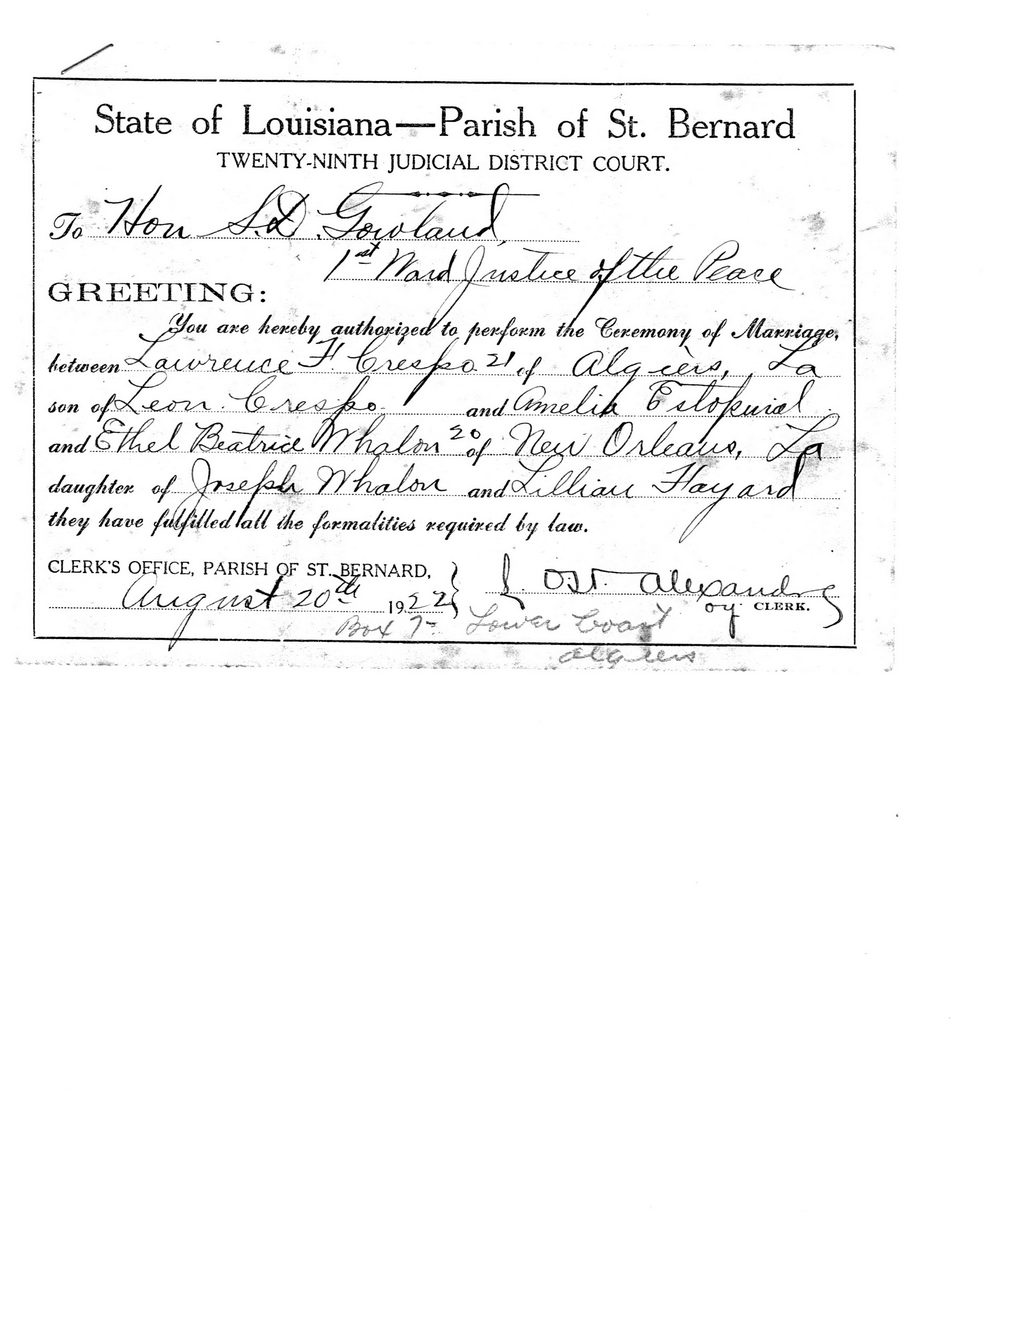 State of Louisiana—Parish of St. Bernard
TWENTY-NINTH JUDICIAL DISTRICT COURT.
To Hon S.D. Gowland,
1st Ward Justice of the Peace
GREETING:
You are hereby authorized to perform the Ceremony of Marriage,
between Lawrence F. Crespo 21 of Algiers, La
son of Leon Crespo and Amelia Estopinal
and Ethel Beatrice Whalon 20 of New Orleans, La
daughter of Joseph Whalon and Lillian Fayard
they have fulfilled all the formalities required by law.
CLERK'S OFFICE, PARISH OF ST. BERNARD,
August 20th 1922 Alexandre
Dy. CLERK.
Box 7- Lower Coast
Algiers